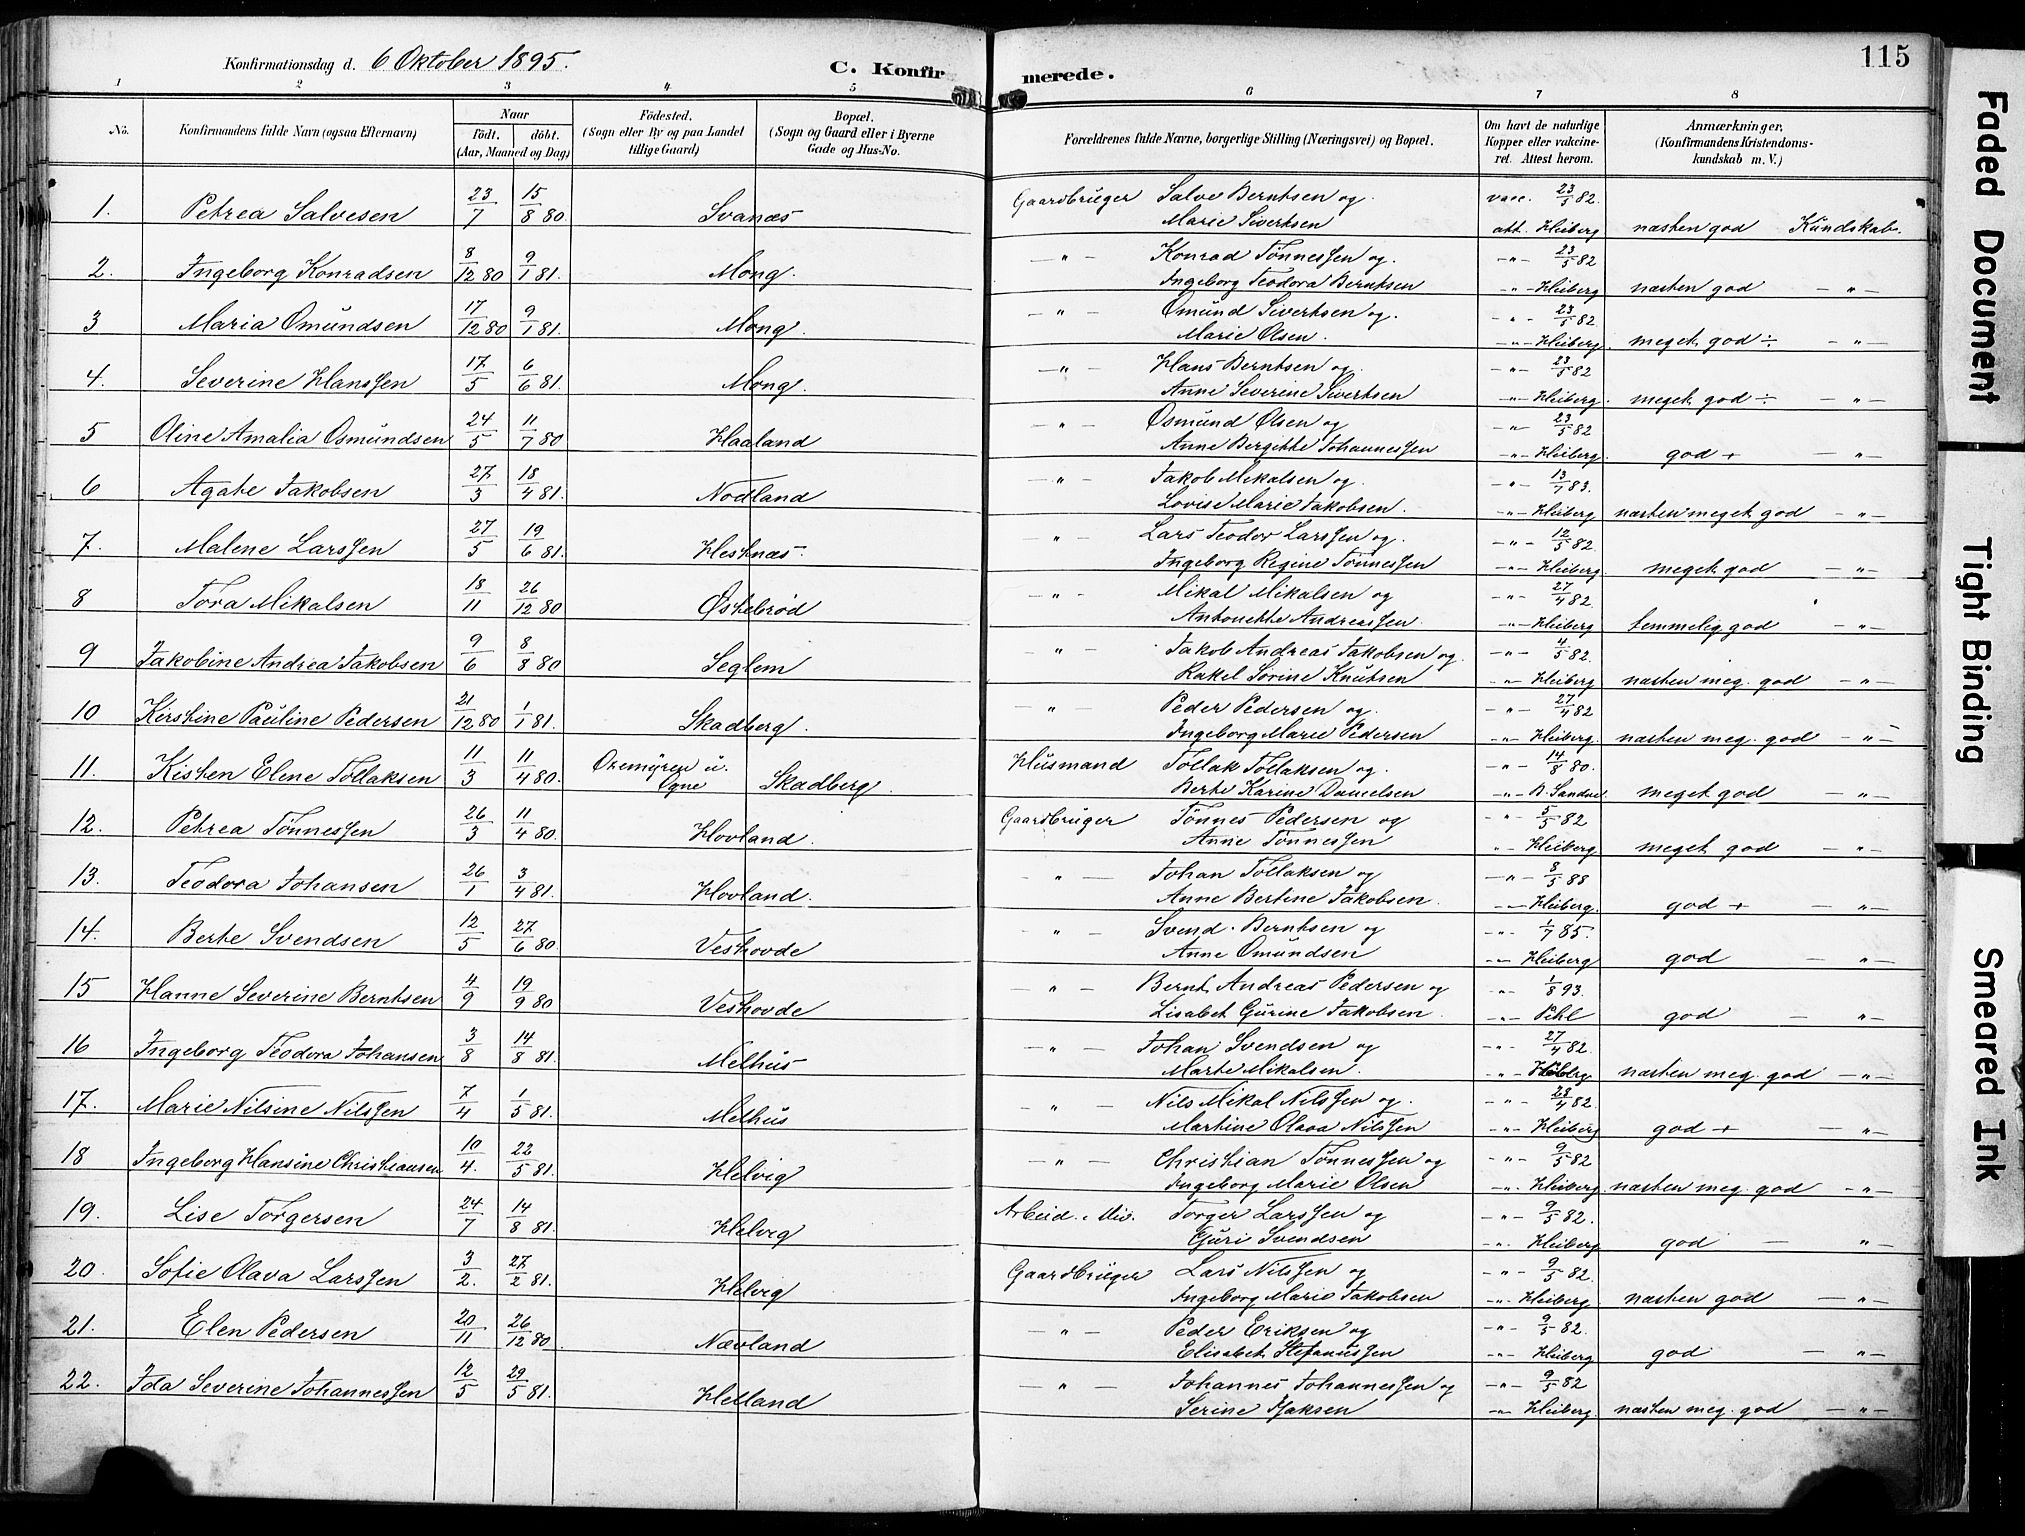 Konfirmationsdag d. 6 Oktober 1895.
C. Konfirmerede.
115
1 2 3 4 5 6 7 8
No.
Konfirmandens fulde Navn (ogsaa Efternavn)
Naar
födt. döbt.
(Aar, Maaned og Dag)
Födested.
(Sogn eller By og paa Landet
tillige Gaard)
Bopæl.
(Sogn og Gaard eller i Byerne
Gade og Hus-No.
Forældrenes fulde Navne, borgerlige Stilling (Næringsvei) og Bopæl.
Om havt de naturlige
Kopper eller vakcine-
ret. Attest herom.
Anmærkninger,
(Konfirmandens Kristendoms-
kundskab m. V.)
1. Petrea Salvesen 23/7 15/8 80. Svanæs Gaardbruger Salve Berntsen og vacc. 23/5 82.
Marie Sivertsen att. Heiberg næsten god Kundskab.
2. Ingeborg Konradsen 8/12 80 9/1 81. Mong. —"— Konrad Tönnessen og. —"— 23/5 82
Ingeborg Teodora Berntsen —"— Heiberg næsten god —"—
3 Maria Omundsen 17/12 80 9/1 81. Mong. —"— Omund Sivertsen og. —"— 23/5 82
Marie Olsen. —"— Heiberg. meget god ÷ —"—
4. Severine Hanssen 17/5 6/6 81. Mong. —"— Hans Berntsen og. —"— 23/5 82
Anne Severine Sivertsen —"— Heiberg. meget god ÷ —"—
5 Oline Amalia Osmundsen 24/5 11/7 80 Haaland —"— Osmund Olsen og —"— 23/5 82
Anne Bergitte Johannessen —"— Heiberg. god + —"—
6 Agate Jakobsen 27/3 18/4 81. Nodland —"— Jakob Mikalsen og. —"— 13/7 83.
Lovise Marie Jakobsen. —"— Heiberg næsten meget god —"—
7. Malene Larssen 27/5 19/6 81. Hestnæs. —"— Lars Teodor Larssen og. —"— 12/5 82.
Ingeborg Regine Tönnessen —"— Heiberg. meget god —"—
8 Tora Mikalsen 18/11 26/12 80 Østebrød —"— Mikal Mikalsen og —"— 27/4 82.
Antonette Andreassen. —"— Heiberg temmelig god —"—
9 Jakobine Andrea Jakobsen 9/6 8/8 80 Seglem —"— Jakob Andreas Jakobsen og. —"— 4/5 82.
Rakel Sorine Knutsen —"— Heiberg næsten meg. god —"—
10 Kirstine Pauline Pedersen 21/12 80 1/1 81. Skadberg. —"— Peder Pedersen og. —"— 27/4 82
Ingeborg Marie Pedersen —"— Heiberg. næsten meg. god —"—
11. Kisten Elene Tollaksen 11/3 11/4 80. Ogne Skadberg. Husmand Tollak Tollaksen og. —"— 14/8 80.
Berte Karine Danielsen —"— meget god —"—
12. Petrea Tönnessen 26/3 11/4 80. Hovland. Gaardbruger Tönnes Pedersen og —"— 5/5 82
Anne Tönnessen "— Heiberg meget god —"—
13. Teodora Johansen 26/1 3/4 81. Hovland. —"— Johan Tollaksen og —"— 8/5 88
Anne Bertine Jakobsen. —"— Heiberg. god + —"—
14. Berte Svendsen 12/5 27/6 80. Veshovde —"— Svend Berntsen og —"— 1/7 85.
Anne Omundsen —"— Heiberg god —"—
15 Hanne Severine Berntsen 4/9 19/9 80 Veshovde —"— Bernt Andreas Pedersen og —"— 1/8 93.
Lisabet Gurine Jakobsen. —"— Pehl god —"—
16 Ingeborg Teodora Johansen 3/8 14/8 81. Melhus —"— Johan Svendsen og —"— 27/4 82.
Marte Mikalsen. —"— Heiberg næsten meg. god —"—
17. Marie Nilsine Nilssen 7/4 1/5 81. Melhus —"— Nils Mikal Nilssen og. —"— 28/4 82.
Martine Olava Nilssen —"— Heiberg god + —"—
18 Ingeborg Hansine Christiansen 10/4. 22/5 81. Helvig —"— Christian Tönnessen og —"— 9/5 82
Ingeborg Marie Olsen —"— Heiberg. næsten meg. god —"—
19. Lise Torgersen 24/7 14/8 81. Helvig Arbeid. Torger Larssen og —"— 9/5 82.
Guri Svendsen —"— Heiberg god —"—
20. Sofie Olava Larssen 3/2. 27/2 81. Helvig Gaardbruger Lars Nilssen og —"— 9/5 82.
Ingeborg Marie Jakobsen —"— Heiberg næsten god —"—
21. Elen Pedersen 20/11 26/12 80. Nævland —"— Peder Eriksen og —"— 9/5 82.
Elisabet Stefanussen —"— Heiberg god —"—
22. Ida Severine Johannessen 12/5 29/5 81. Helland —"— Johannes Johannessen og —"— 9/5 82
Serine Isaksen —"— Heiberg. næsten meg. god —"—
Faded Document
Tight Binding
Smeared Ink